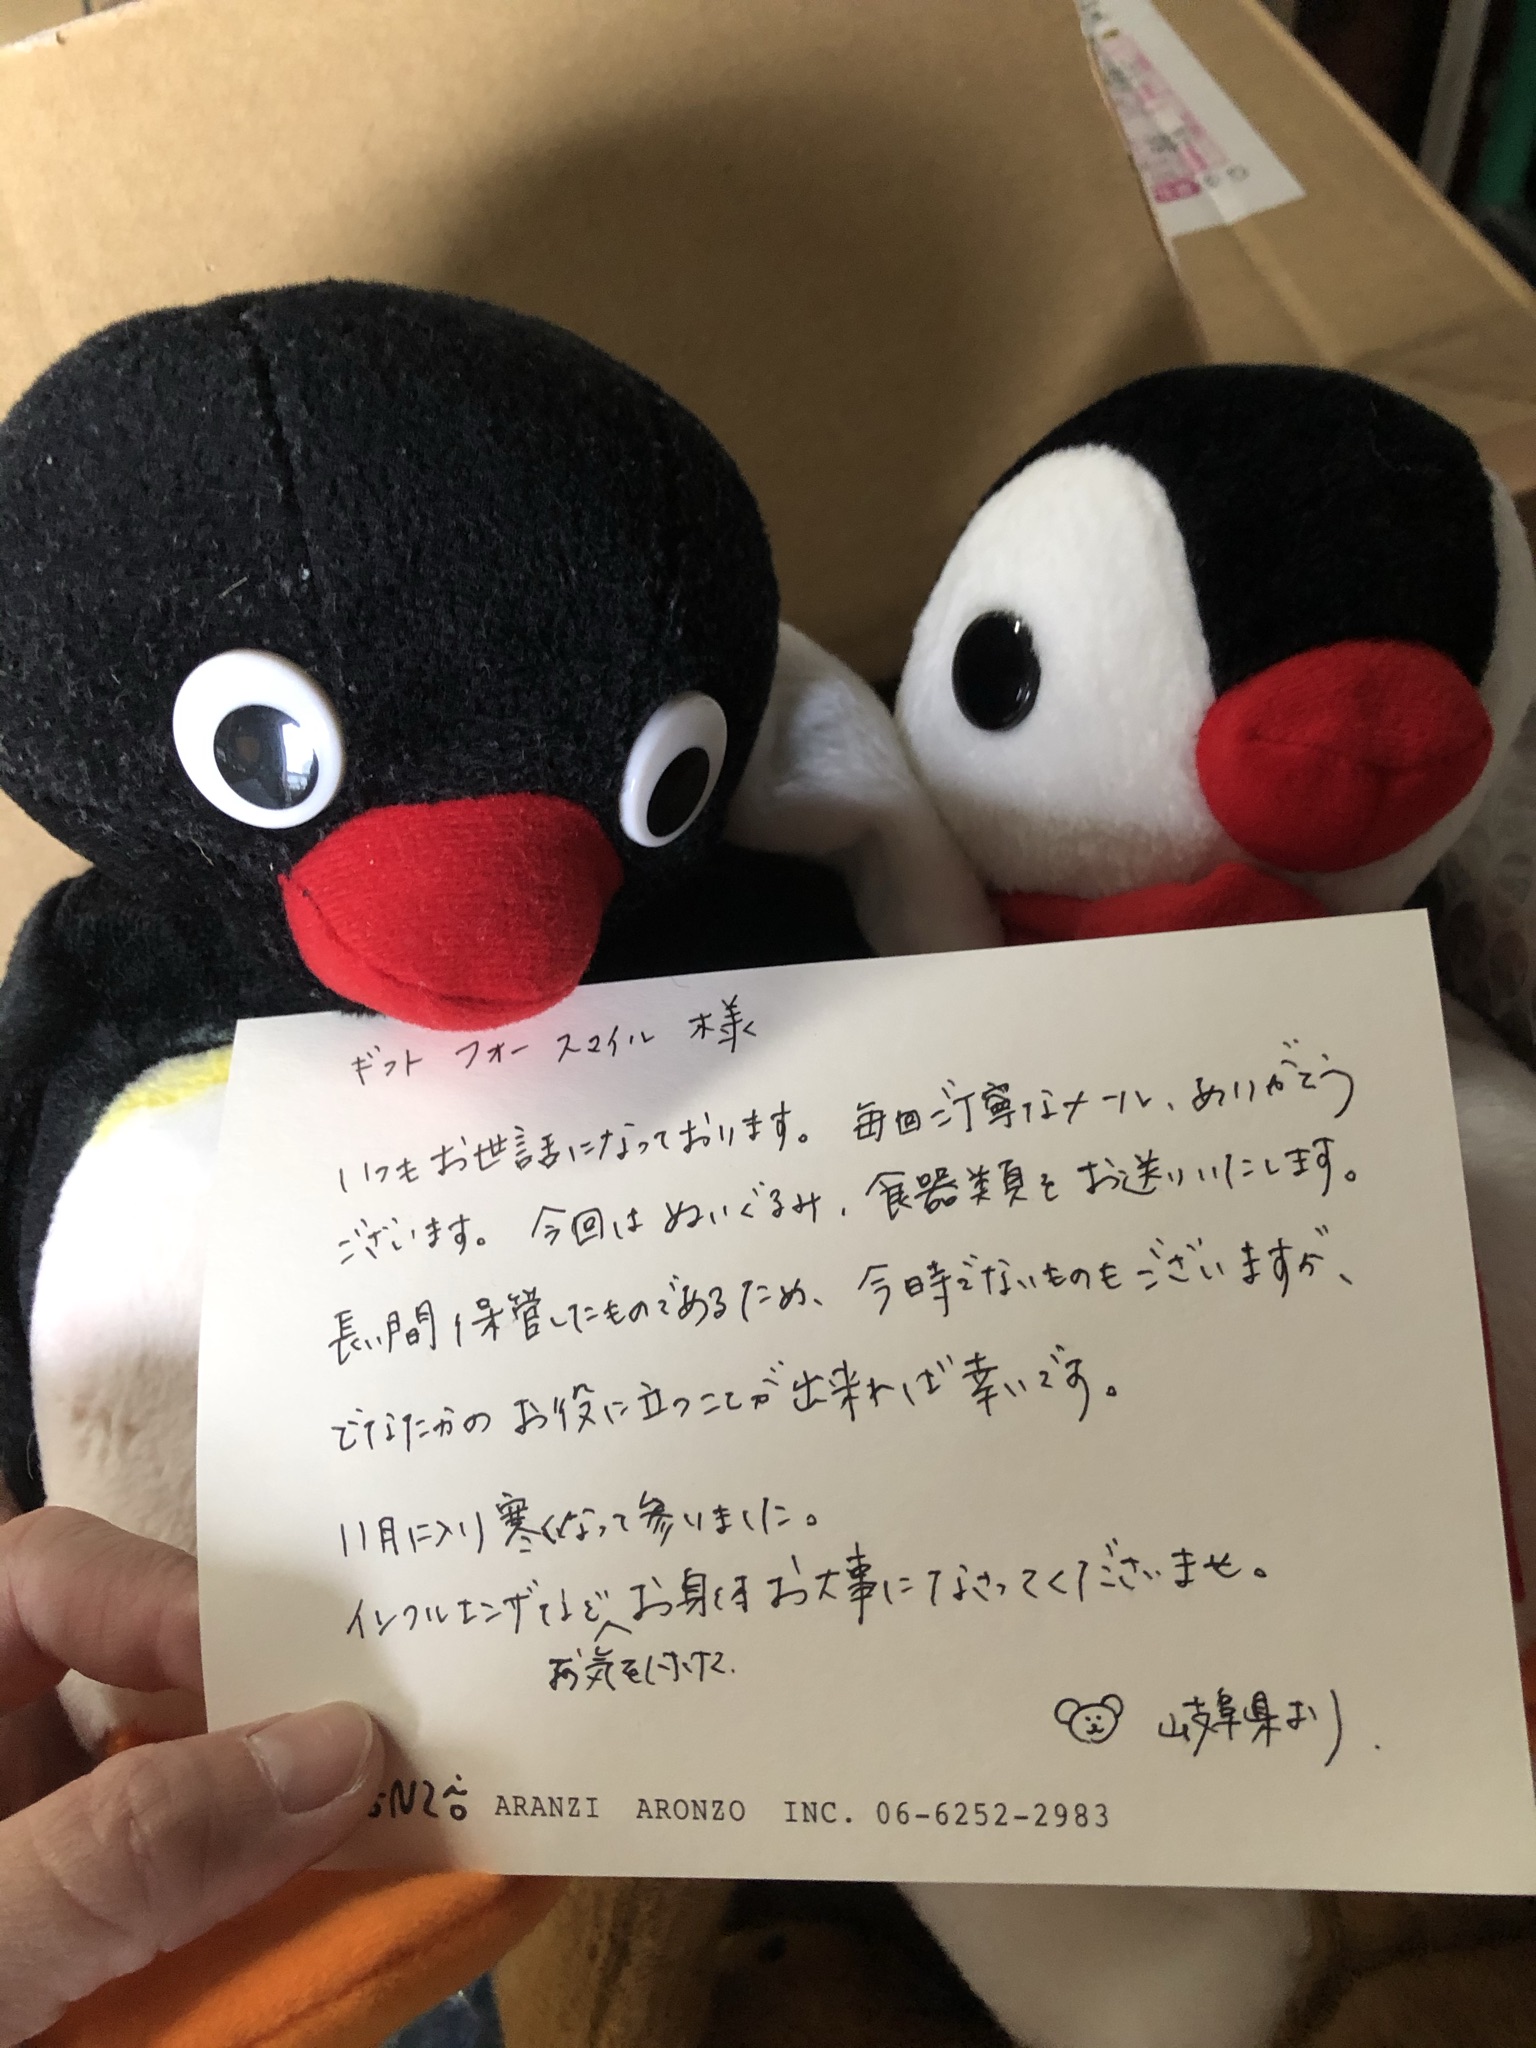 ギフト フォー スマイル 様
いつもお世話になっております。毎回ご丁寧なメール、ありがとう
ございます。今回はぬいぐるみ、食器類をお送りいたします。
長い間保管したものであるため、今時でないものもございますが、
どなたかのお役に立つことが出来れば幸いです。
11月に入り寒くなって参りました。
インフルエンザなどお身体お大事になさってくださいませ。
お気を付けて、
岐阜県より.
ARANZI ARONZO INC. 06-6252-2983